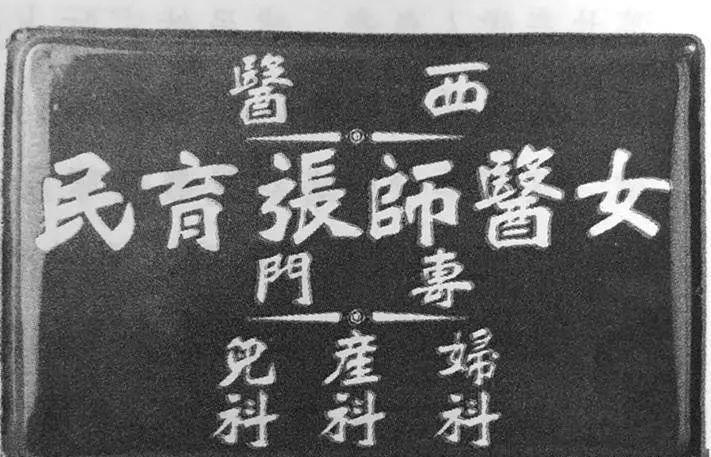 西醫
女醫師張育民
專門
婦科
產科
兒科